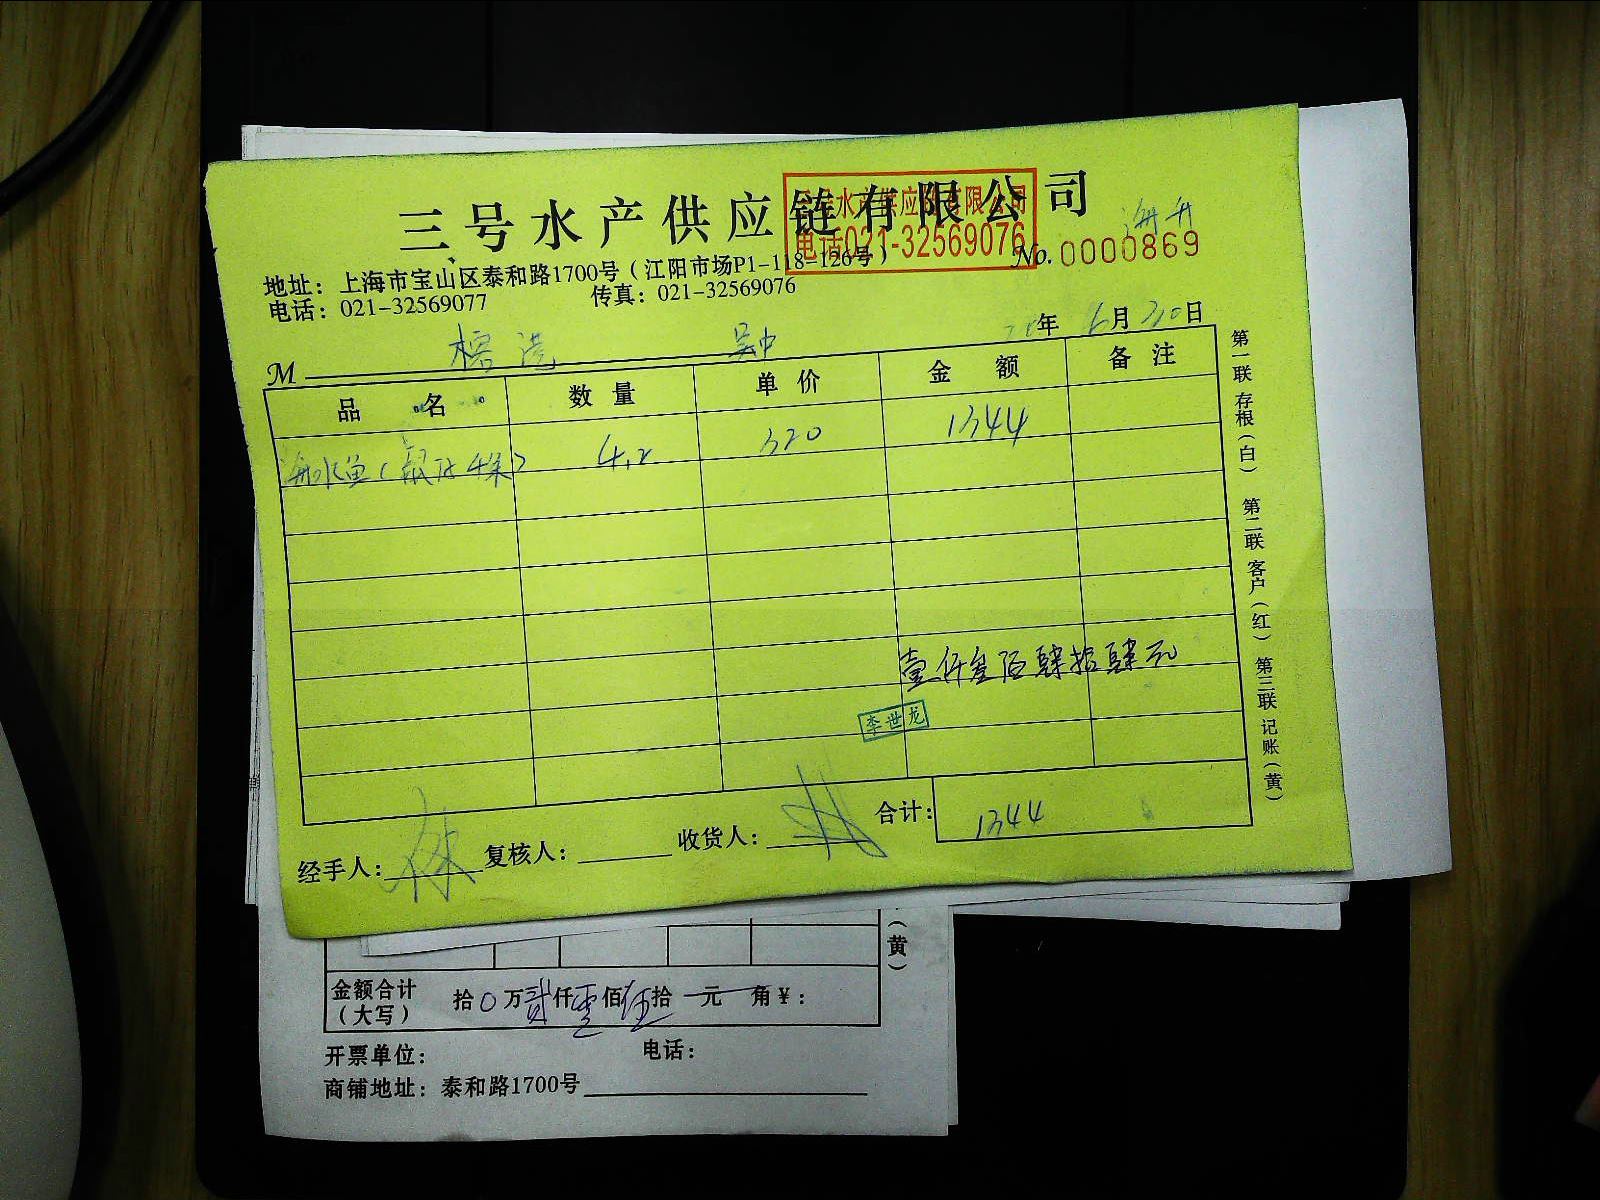 三号水产供应链有限公司
三号水产供应链有限公司
电话021-32569076
海升
地址：上海市宝山区泰和路1700号（江阳市场P1-118-126号）
No.0000869
电话：021-32569077 传真：021-32569076
M 榕港 吴中
年6月30日
品名 数量 单价 金额 备注
海水鱼 4.2 320 1344
壹仟叁佰肆拾肆元
李世龙
合计：1344
经手人： 复核人： 收货人：
第一联 存根（白） 第二联 客户（红） 第三联 记账（黄）
（黄）
金额合计（大写） 拾0万贰仟壹佰伍拾元角￥：
开票单位： 电话：
商铺地址：泰和路1700号